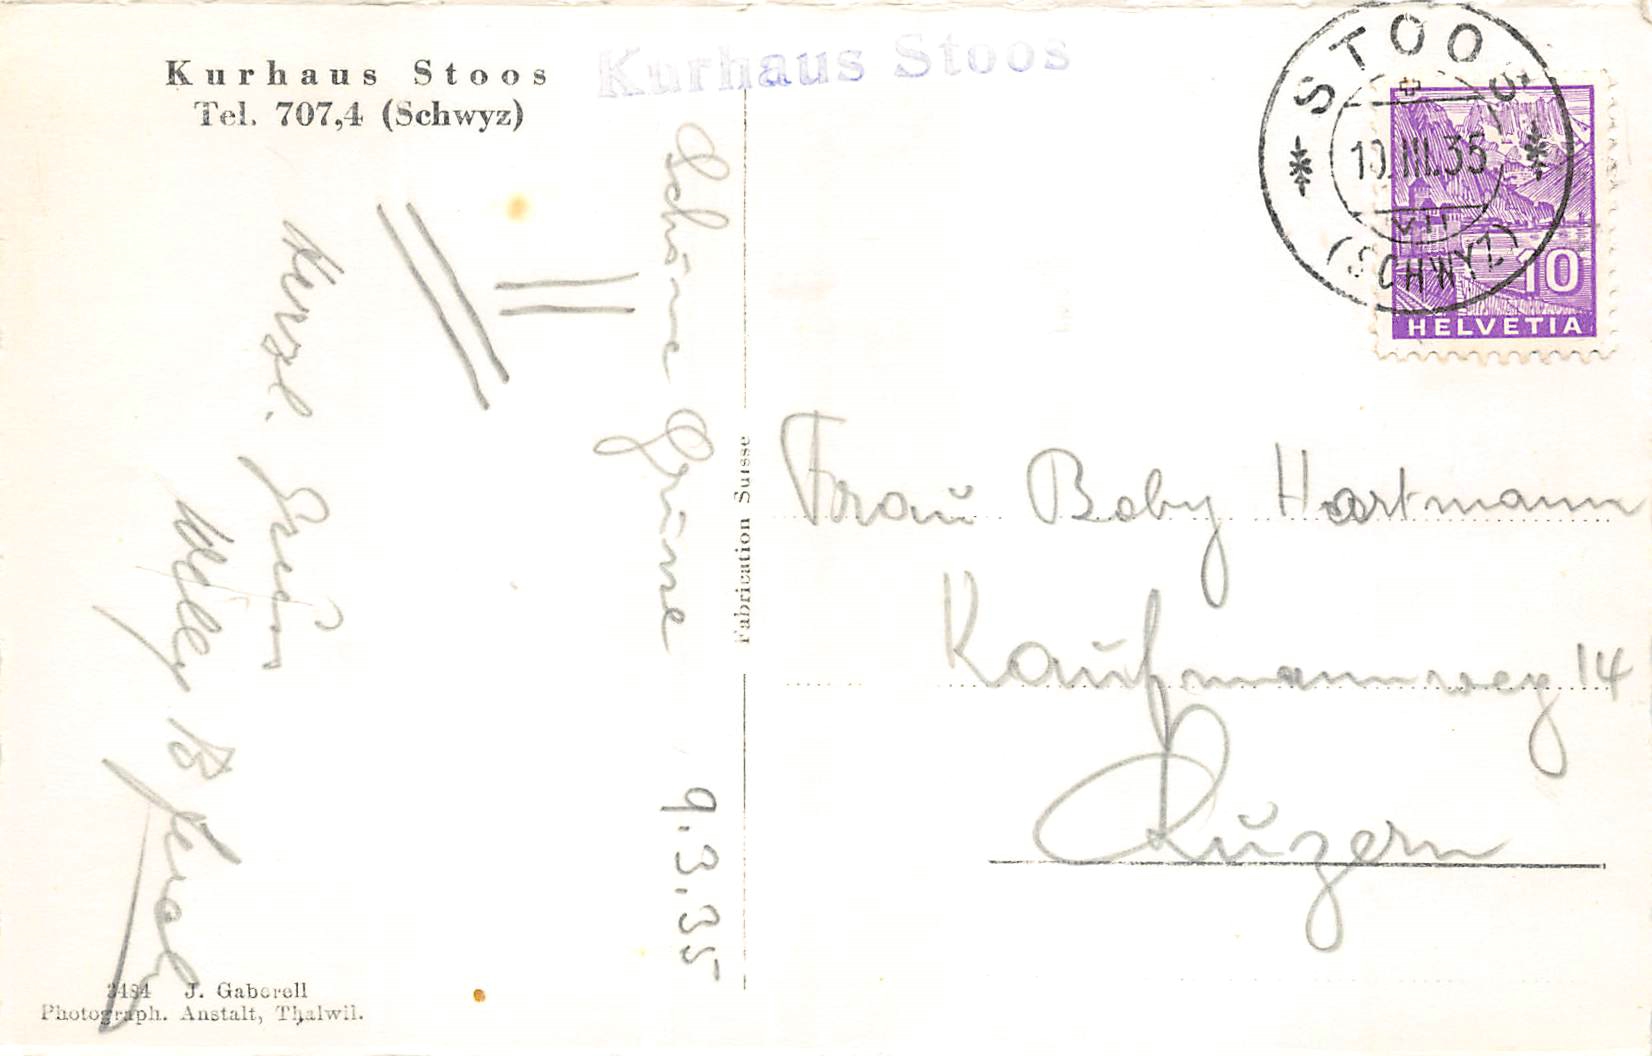 Kurhaus Stoos
Tel. 707,4 (Schwyz)
Kurhaus Stoos
STOOS
10.III.35
VII
(SCHWYZ)
10
HELVETIA
Schöne Grüsse
9.3.35
Herzl.
Willy
Fabrication Suisse
Frau Boby Hartmann
Kaufmannweg 14
Luzern
3484 J. Gaberell
Photograph. Anstalt, Thalwil.